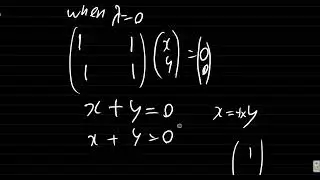 when λ=0
(1 1
1 1) (x
y) = (0
0)
x + y = 0
x + y = 0 x = +xy
(1